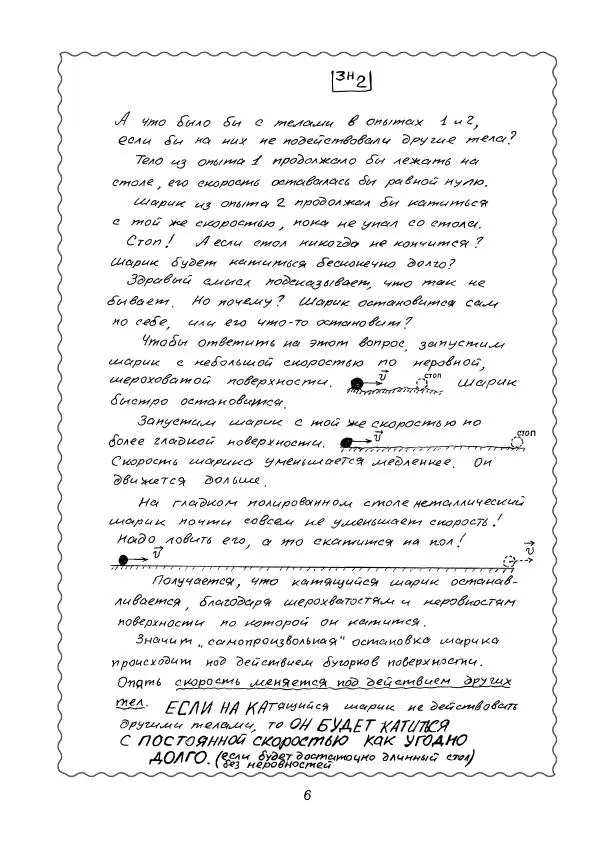 ЗН2
А что было бы с телами в опытах 1 и 2,
если бы на них не подействовали другие тела?
Тело из опыта 1 продолжало бы лежать на
столе, его скорость оставалась бы равной нулю.
Шарик из опыта 2 продолжал бы катиться
с той же скоростью, пока не упал со стола.
Стоп! А если стол никогда не кончится?
Шарик будет катиться бесконечно долго?
Здравый смысл подсказывает, что так не
бывает. Но почему? Шарик остановится сам
по себе, или его что-то остановит?
Чтобы ответить на этот вопрос, запустим
шарик с небольшой скоростью по неровной,
шероховатой поверхности. v стоп шарик
быстро остановится.
Запустим шарик с той же скоростью по
более гладкой поверхности. v стоп
Скорость шарика уменьшается медленнее. Он
движется дольше.
На гладком полированном столе металлический
шарик почти совсем не уменьшает скорость!
Надо ловить его, а то скатится на пол!
v v
Получается, что катящийся шарик останав-
ливается, благодаря шерохватостям и неровностям
поверхности по которой он катится.
Значит „самопроизвольная" остановка шарика
происходит под действием бугорков поверхности.
Опять скорость меняется под действием других
тел. ЕСЛИ НА КАтящийся шарик не действовать
другими телами, то ОН БУДЕТ КАТИТЬСЯ
С ПОСТОЯННОЙ СКОРОСТЬЮ КАК УГОДНО
ДОЛГО. (если будет достаточно длинный стол)
без неровностей
6